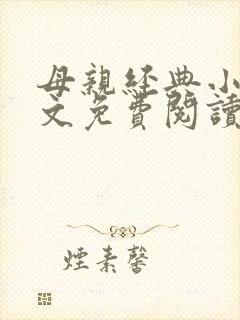 母親經典小
文免費閱讀
煙素馨